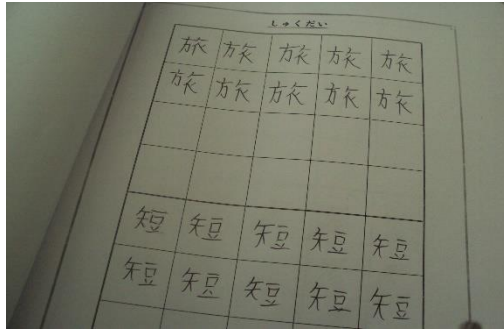 しゅくだい
旅 旅 旅 旅 旅
旅 旅 旅 旅 旅
短 短 短 短 短
短 短 短 短 短